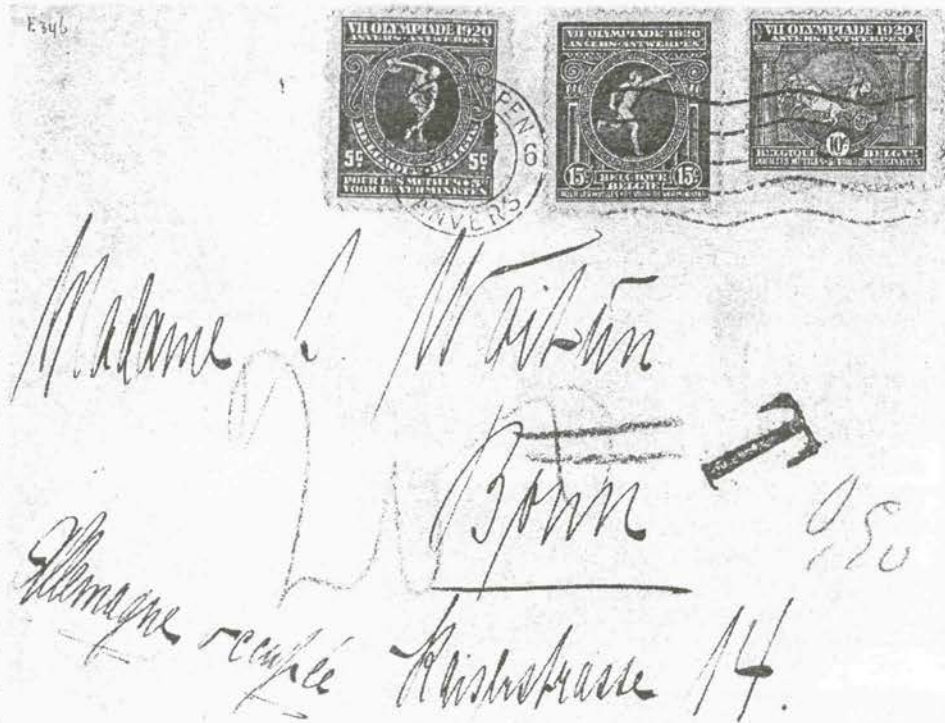 E346
VII OLYMPIADE 1920
ANVERS-ANTWERPEN
5c 5c
BELGIQUE-BELGIË
POUR LES MUTILÉS+5c
VOOR DE VERMINKTEN
VII OLYMPIADE 1920
ANVERS-ANTWERPEN
15c 15c
BELGIQUE
BELGIË
VII OLYMPIADE 1920
ANVERS-ANTWERPEN
10c
BELGIQUE BELGIË
PEN
6
ANVERS
Madame
Bonn
T
0,50
Allemagne occupée Kaiserstrasse 14.